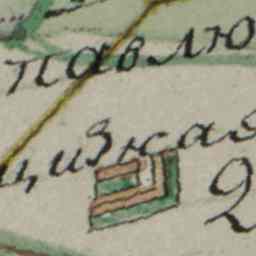 павлю
цизкая
2